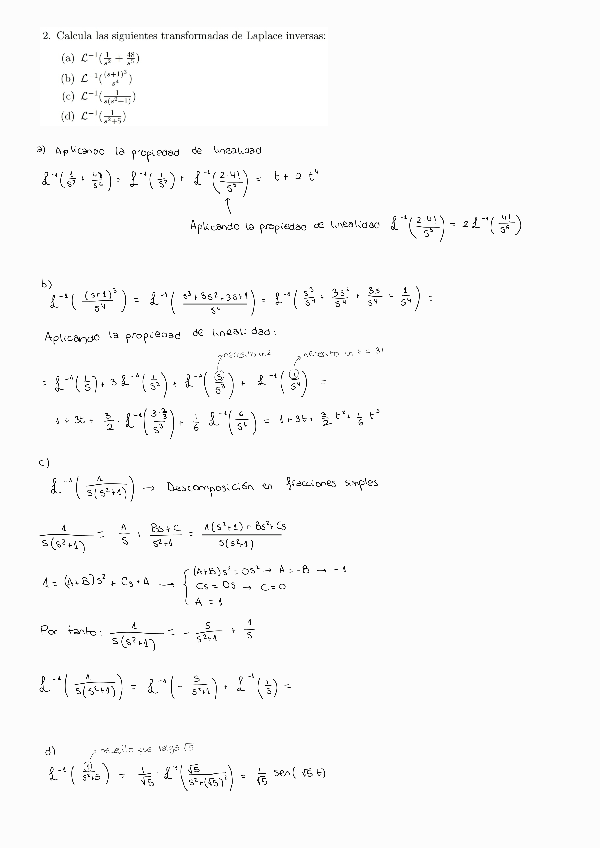 2. Calcula las siguientes transformadas de Laplace inversas:
(a) L⁻¹(1/s² + 48/s⁵)
(b) L⁻¹((s+1)³/s⁴)
(c) L⁻¹(1/(s(s²+1)))
(d) L⁻¹(1/(s²+5))
a) Aplicando la propiedad de linealidad
L⁻¹(1/s² + 48/s⁵) = L⁻¹(1/s²) + L⁻¹(2·4!/s⁵) = t + 2 t⁴
Aplicando la propiedad de linealidad L⁻¹(2·4!/s⁵) = 2 L⁻¹(4!/s⁵)
b)
L⁻¹((s+1)³/s⁴) = L⁻¹((s³+3s²+3s+1)/s⁴) = L⁻¹(s³/s⁴ + 3s²/s⁴ + 3s/s⁴ + 1/s⁴) =
Aplicando la propiedad de linealidad:
necesito
= L⁻¹(1/s) + 3 L⁻¹(1/s²) + L⁻¹(3/s³) + L⁻¹(1/s⁴) =
1 + 3t + 3/2 · L⁻¹( /s³) + 1/6 L⁻¹(6/s⁴) = 1 + 3t + 3/2 t² + 1/6 t³
c)
L⁻¹(1/(s(s²+1))) → Descomposición en fracciones simples
1/(s(s²+1)) = A/s + (Bs+C)/(s²+1) = (A(s²+1) + Bs² + Cs)/(s(s²+1))
1 = (A+B)s² + Cs + A → { (A+B)s² = 0s² → A = -B → -1
Cs = 0s → C = 0
A = 1
Por tanto: 1/(s(s²+1)) = - s/(s²+1) + 1/s
L⁻¹(1/(s(s²+1))) = L⁻¹(- s/(s²+1)) + L⁻¹(1/s) =
d)
L⁻¹(1/(s²+5)) = 1/√5 · L⁻¹(√5/(s²+(√5)²)) = 1/√5 sen(√5 t)